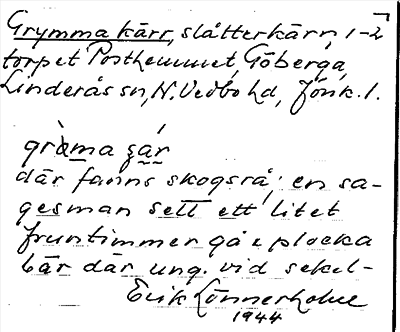 Grymma kärr, slåtterkärr, 1-2
torpet Posthemmet, Göberga,
Linderås sn, N. Vedbo hd, Jönk. l.
grὰma ʂár
där fanns skogsrå; en sa-
gesman sett ett litet
fruntimmer gå o plocka
bär där ung. vid sekel-
Erik Lönnerholm
1944